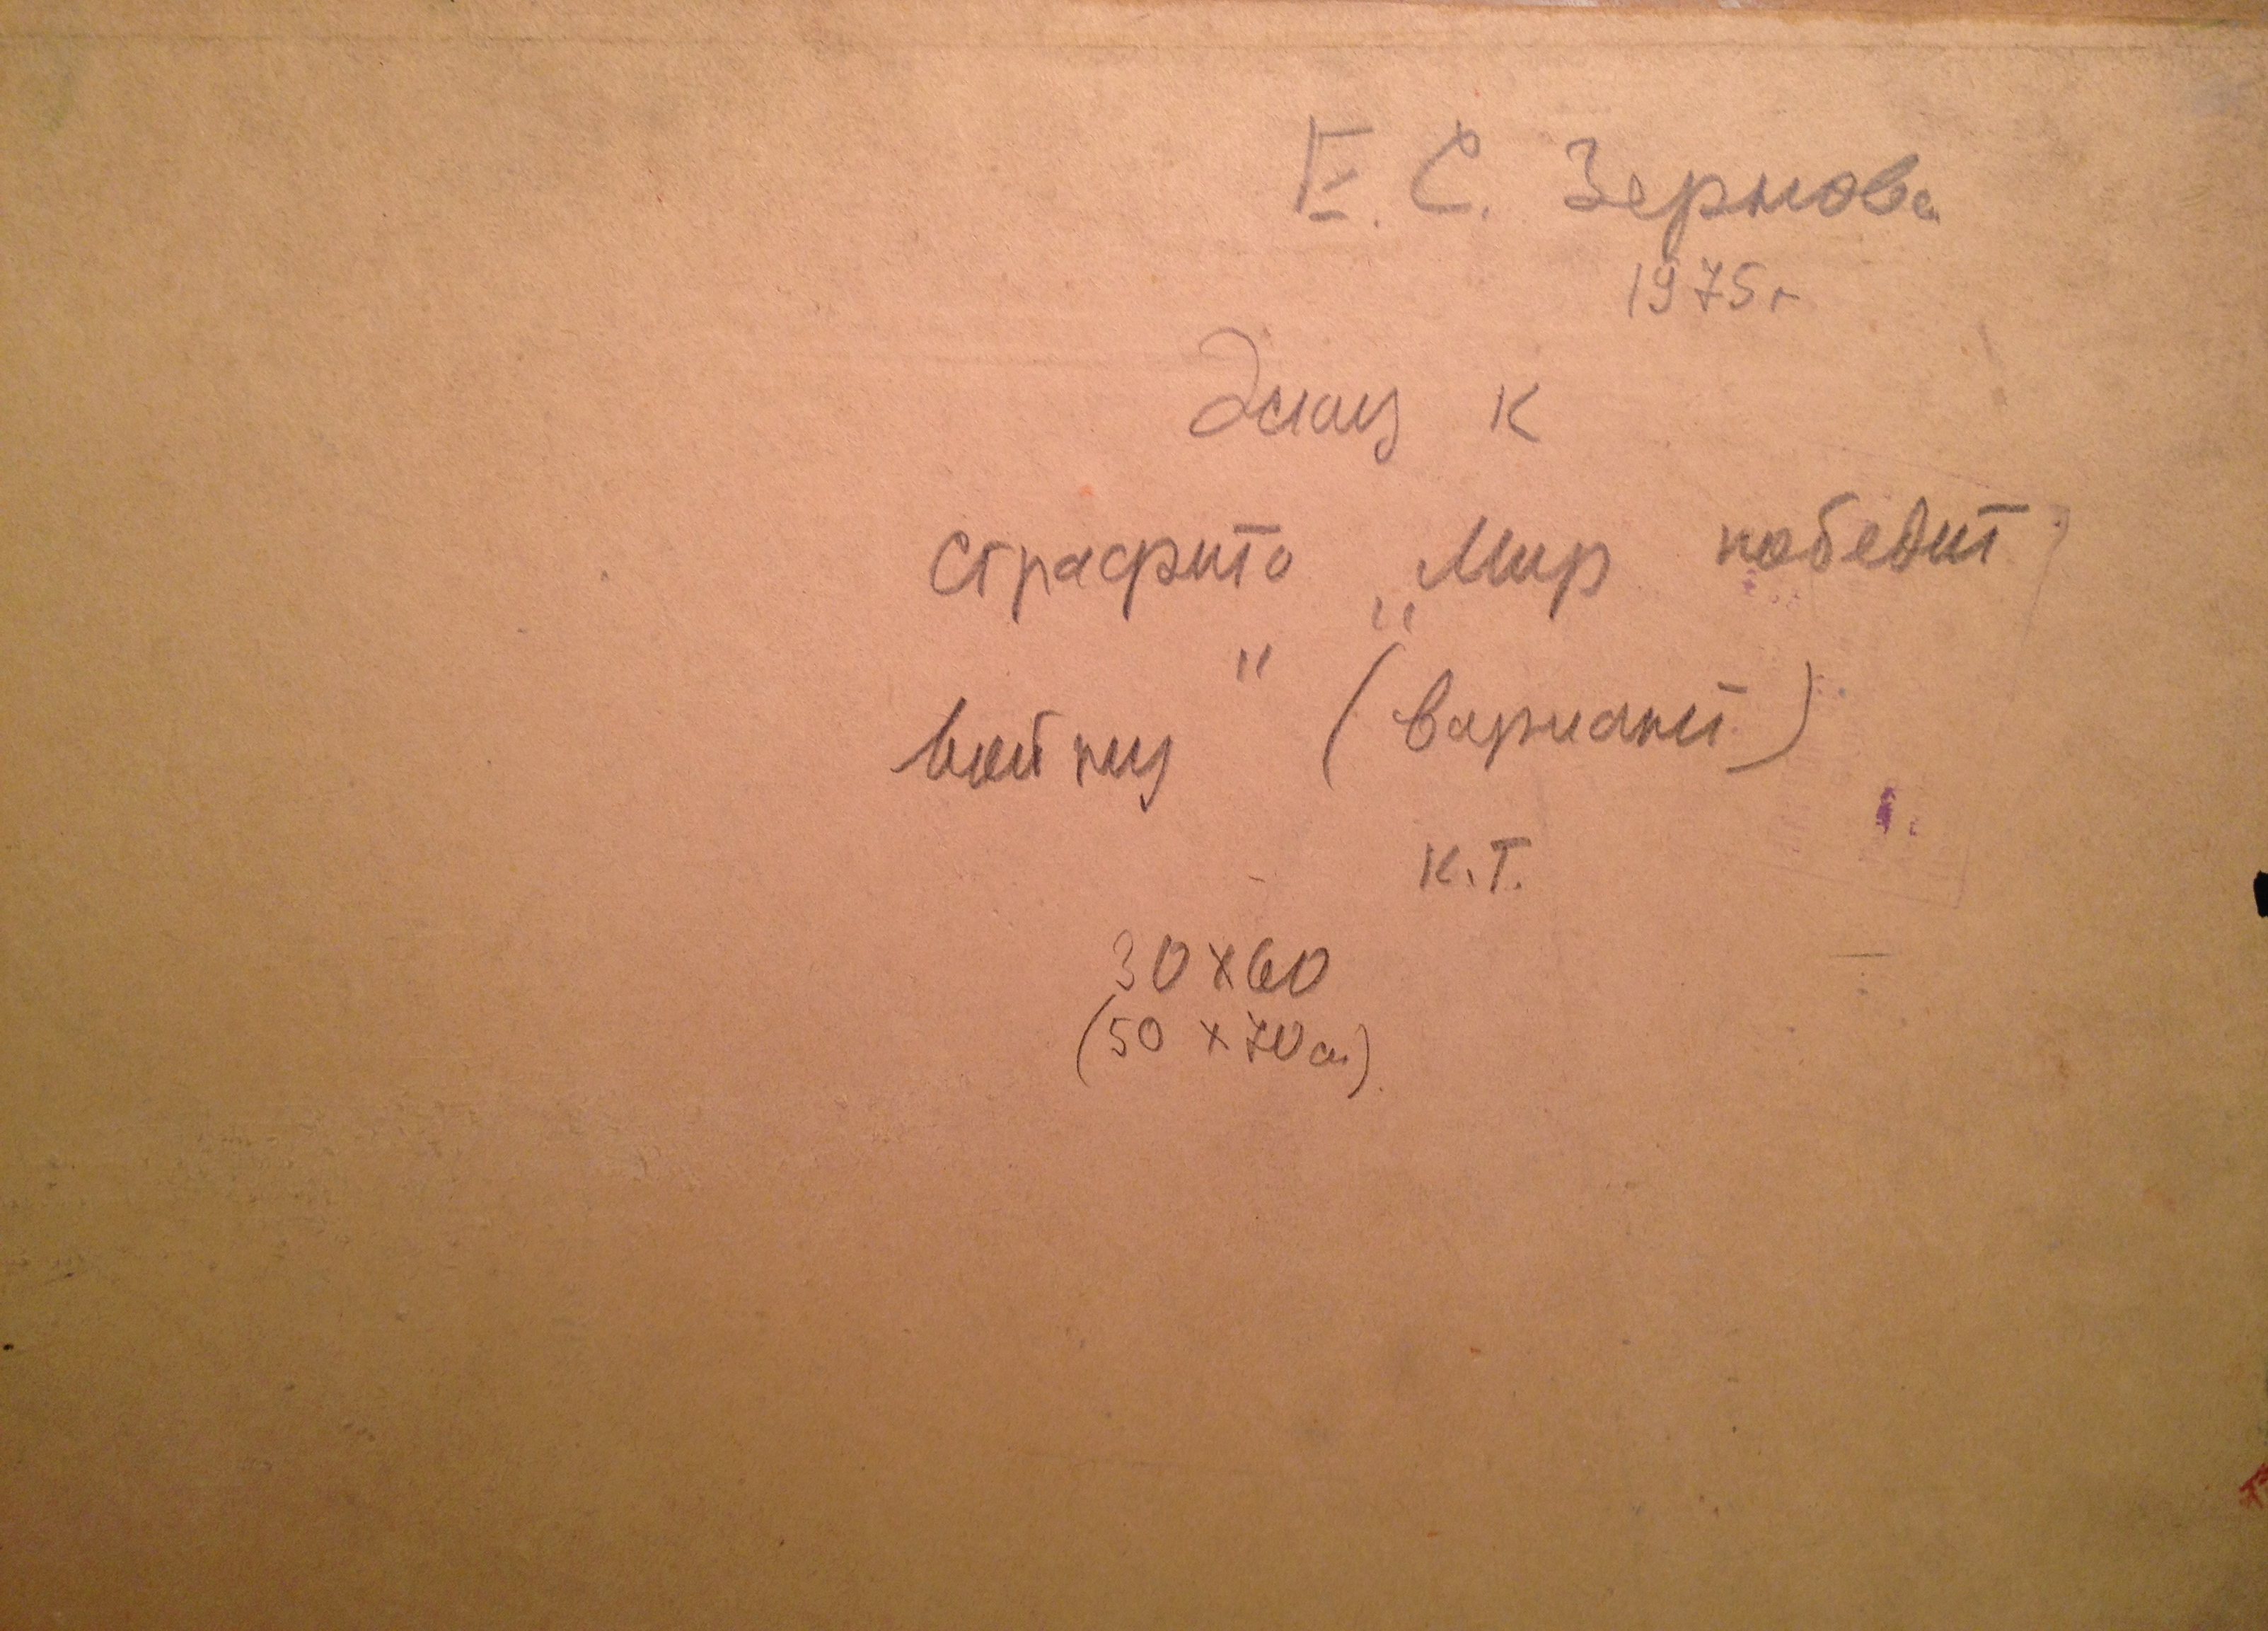 Е. С. Зернова
1975 г
Эскиз к
сграфито „Мир победит
войну" (вариант)
К.Т.
30 х 60
(50 х 70 см).